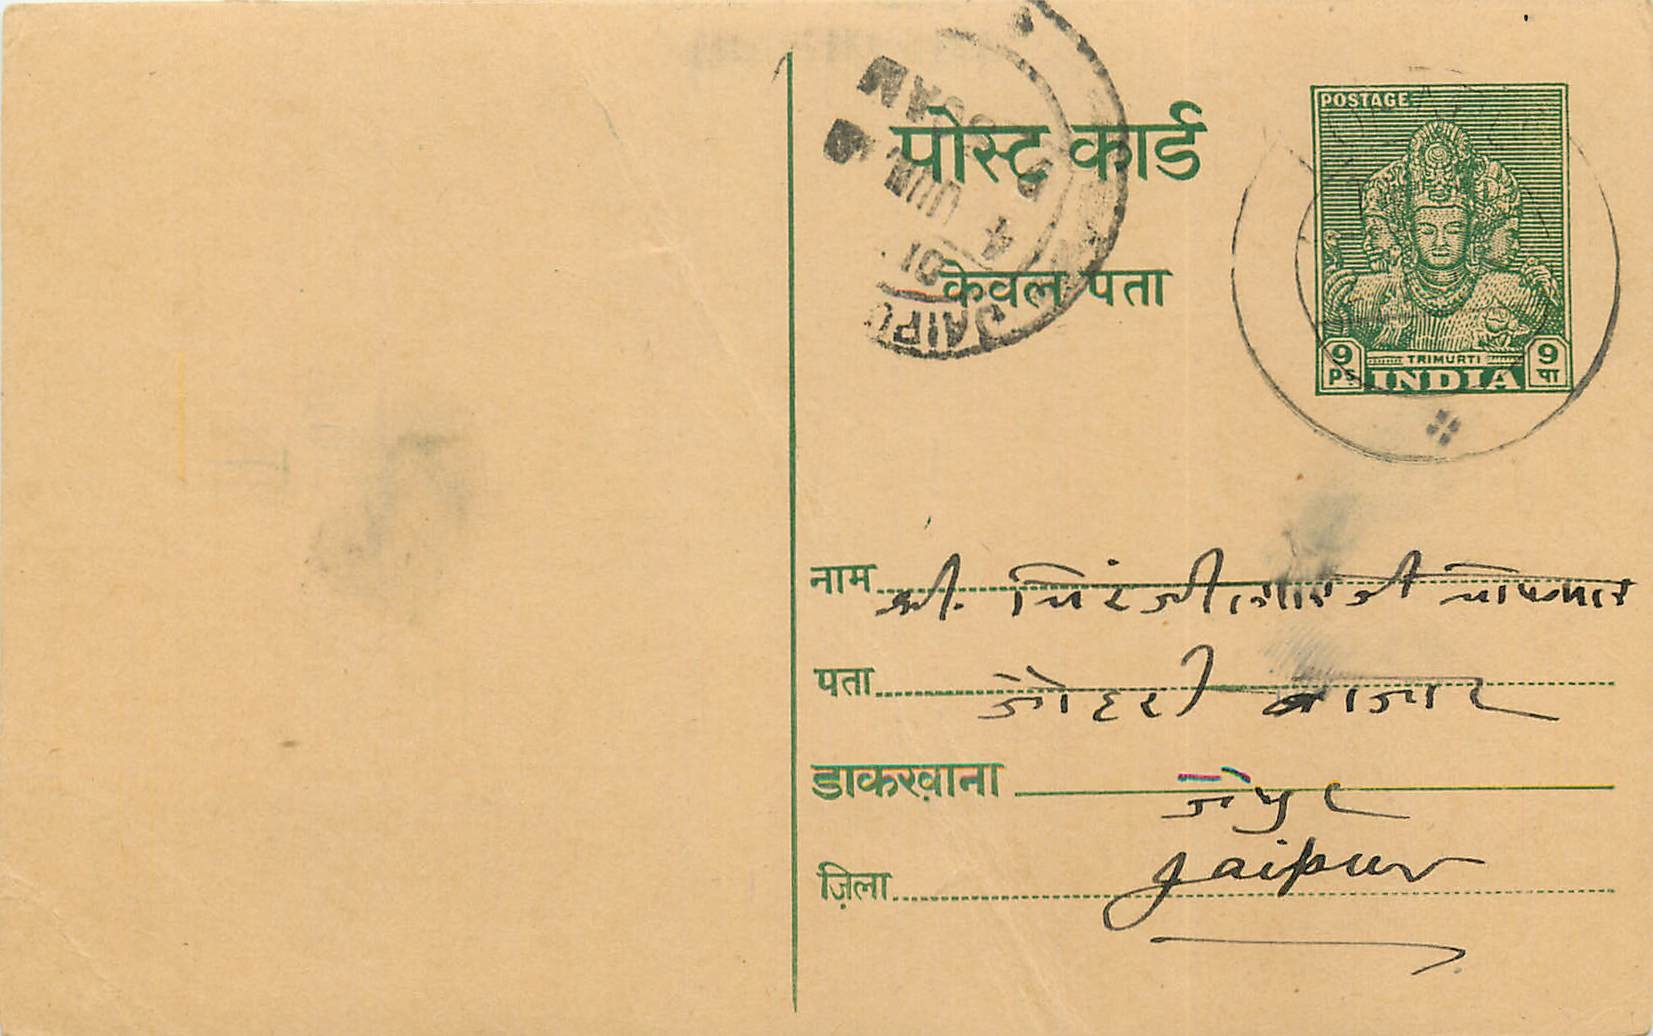 POSTAGE
पोस्ट कार्ड
केवल पता
9 ps TRIMURTI 9 पा
INDIA
JAIPU
नाम श्री. चिरंजीलालजी
पता जौहरी बाजार
डाकख़ाना जैपुर
ज़िला Jaipur